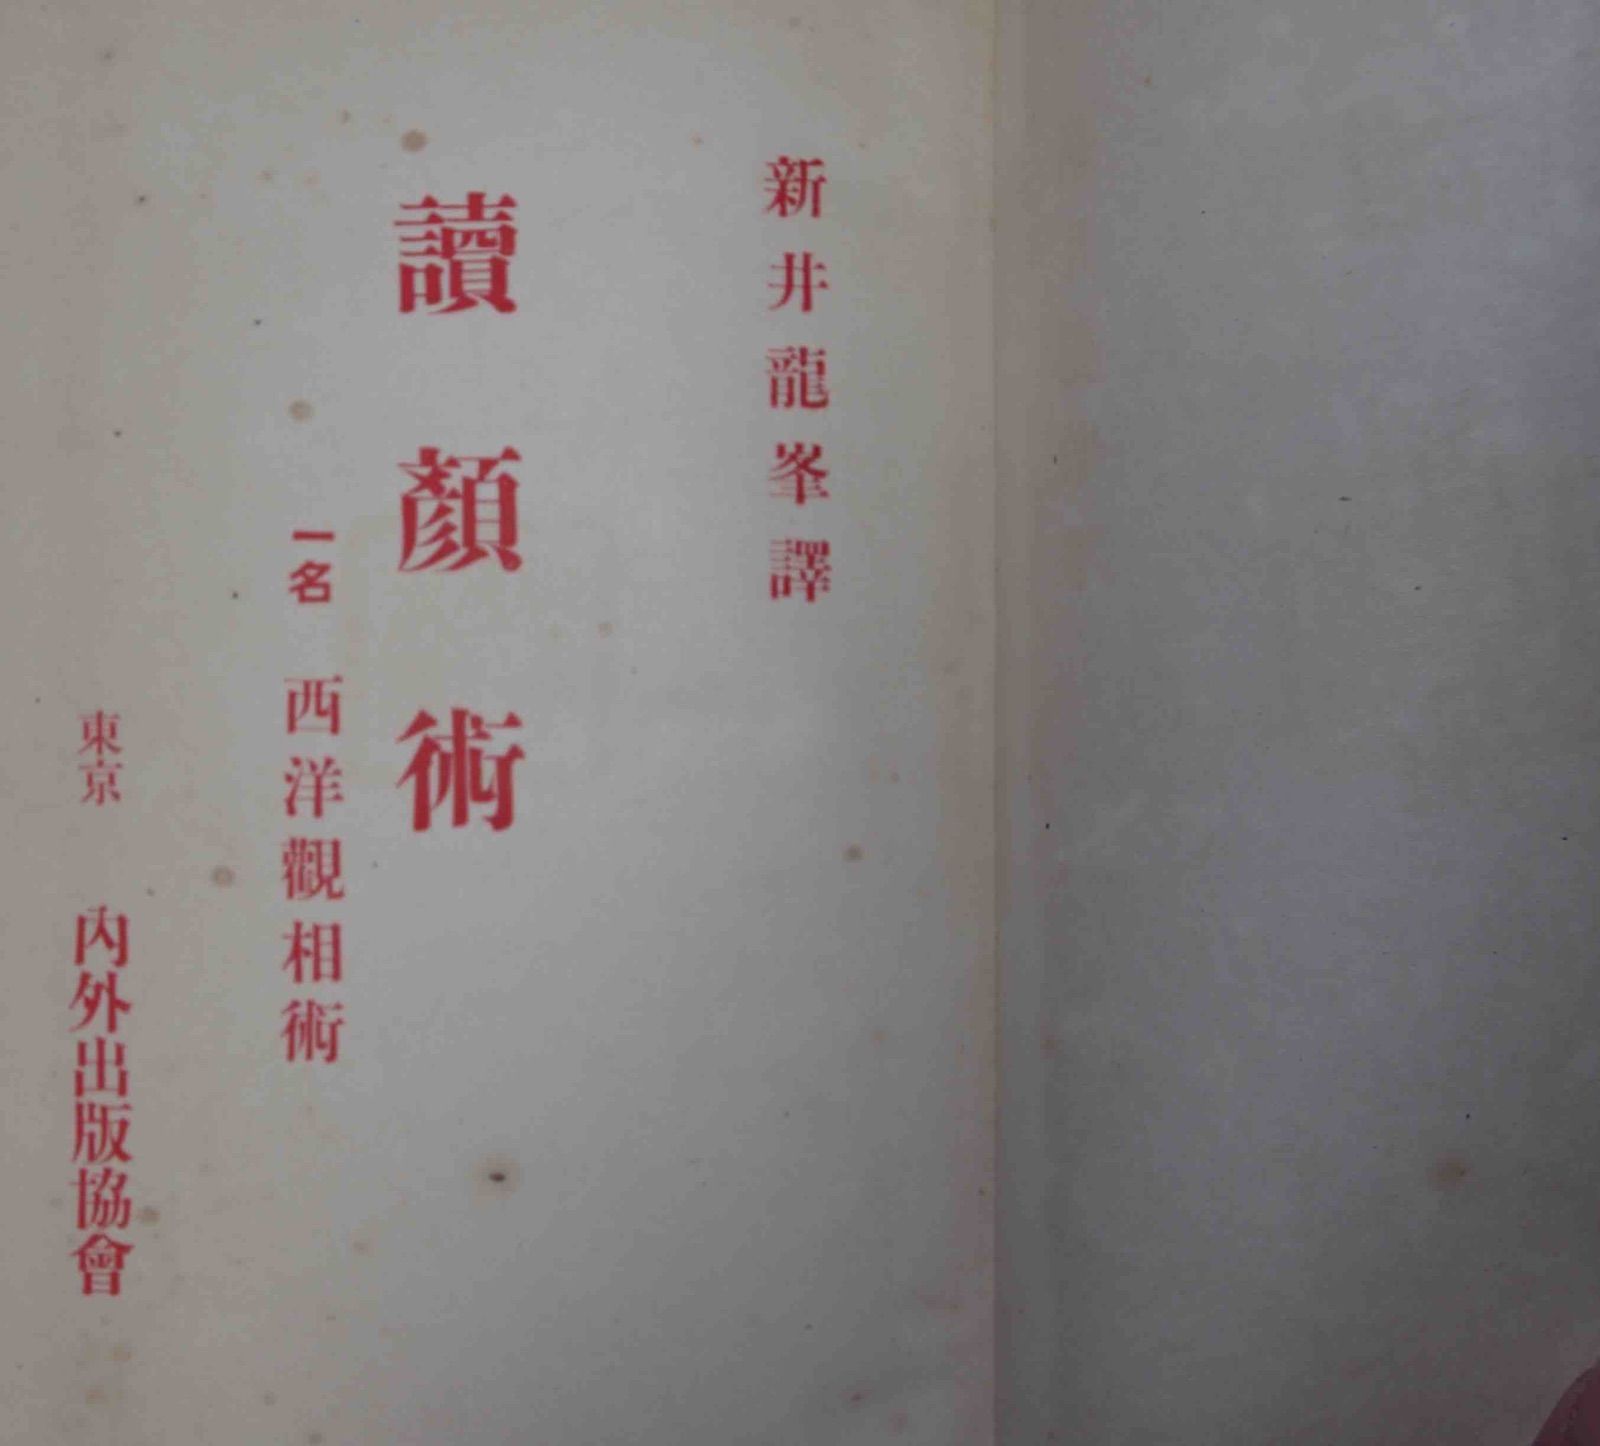 新井龍峯譯
讀顏術
一名 西洋觀相術
東京 內外出版協會